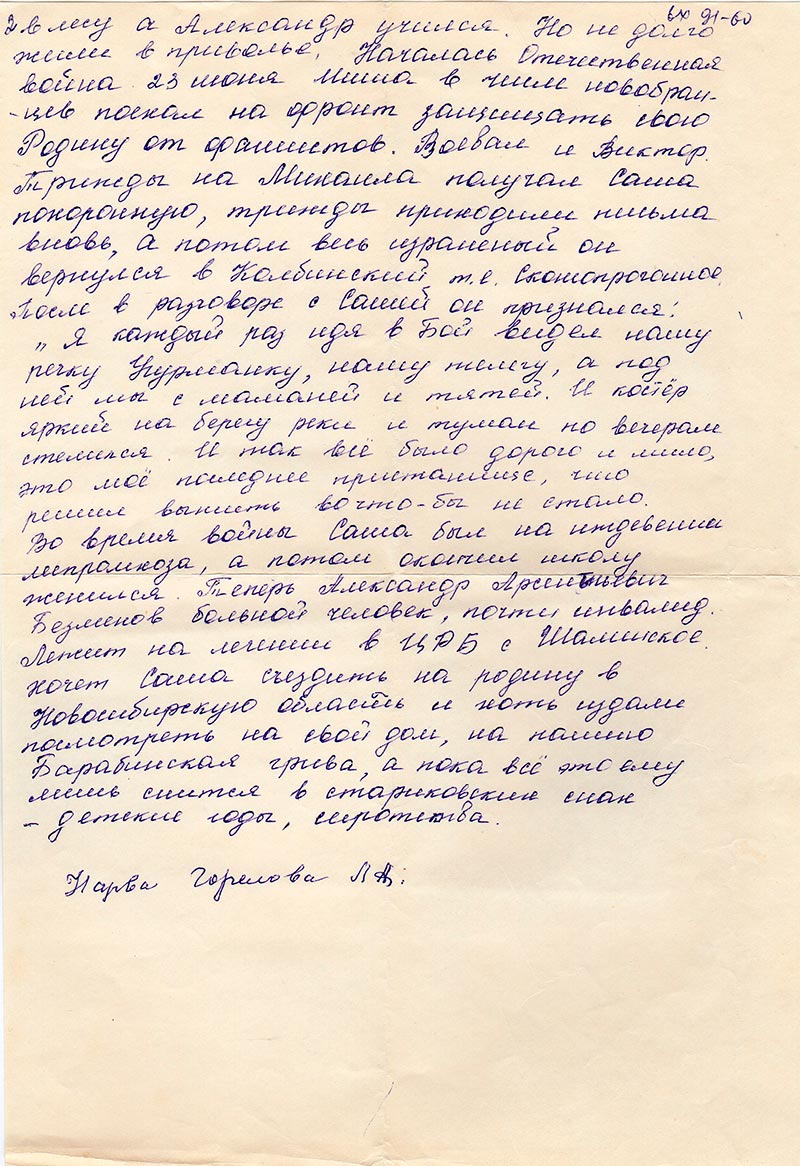 вх 91-60
2 в лесу а Александр учился. Но не долго
жили в приволье. Началась Отечественная
война. 23 июня Миша в числ новобран-
-цев поехал на фронт защищать свою
Родину от фашистов. Воевал и Виктор.
Трижды на Михаила получал Саша
похоронную, трижды приходили письма
вновь, а потом весь израненый он
вернулся в Колбинский т.е. Скотопрогонное.
После в разговоре с Сашей он признался:
„Я каждый раз идя в Бой видел нашу
речку Чурманку, нашу
ней мы с маманей и тятей. И костёр
яркий на берегу реки и туман по вечерам
стелился. И так всё было дорого и мило,
это моё последнее пристанище, что
решил выжить вочто-бы не стало.
Во время войны Саша был на иждевении
леспромхоза, а потом окончил школу
женился. Теперь Александр Арсентьевич
Безменов больной человек, почти инвалид.
Лежит на лечении в ЦРБ с
хочет Саша съездить на родину в
Новосибирскую область и хоть издали
посмотреть на свой дом, на
Барабинская грива, а пока всё это ему
лишь снится в стариковских снах
- детские годы, сиротства.
Нарва Горелова Л А.